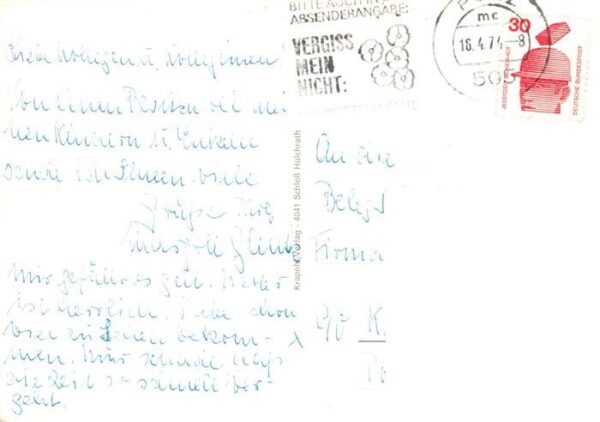 Liebe Kollegen u. Kolleginnen
Von einem Besuch bei mei
nen Kindern u. Enkeln
sende ich Ihnen viele
Grüße Ihre
Mir gefällt es gut. Wetter
ist herrlich. Habe schon
zu
men. Nur schade daß
die Zeit so schnell ver-
geht.
BITTE AUCH IN
ABSENDERANGABE:
VERGISS
MEIN
NICHT:
mc
16.4.74-8
505
30
JEDERZEIT SICHERHEIT
DEUTSCHE BUNDESPOST
Krapohl-Verlag - 4041 Schloß Hülchrath
An die
Belegs
Firma
K.
Po